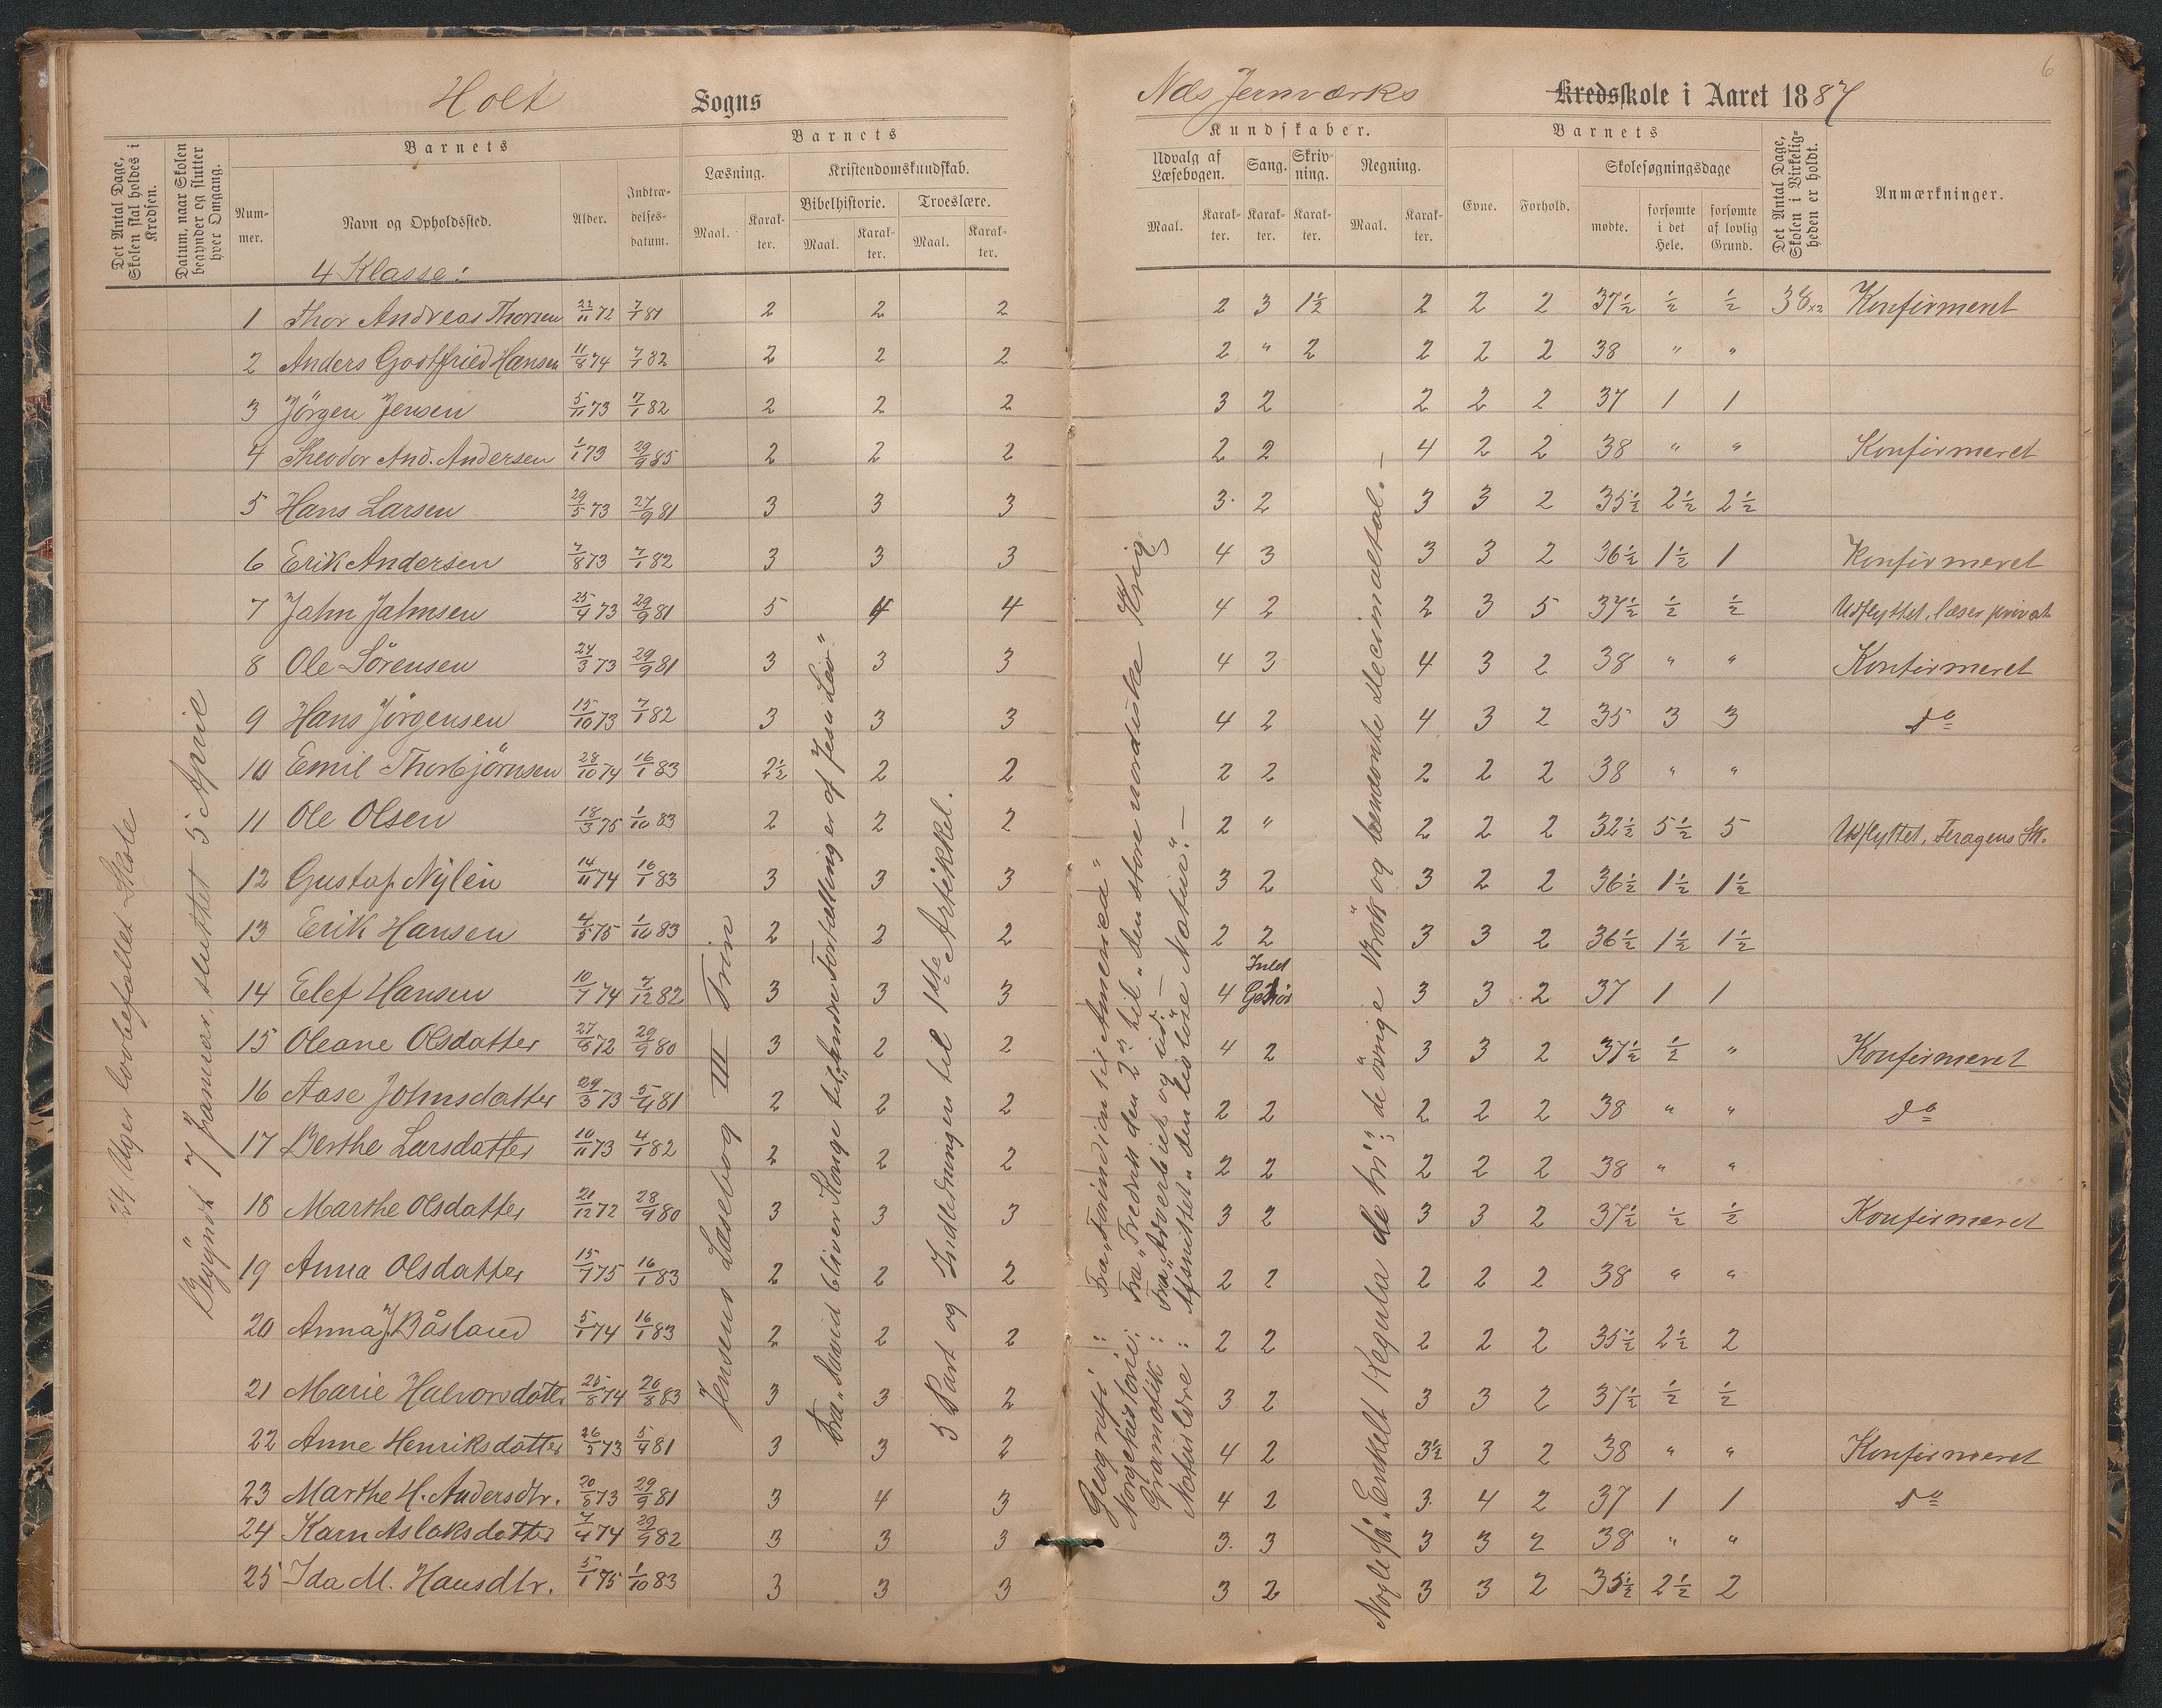 Holt Sogns
Næs Jernværks Kredsskole i Aaret 1887
6
Det Antal Dage, Skolen skal holdes i Kredsen.
Datum, naar Skolen begynder og slutter hver Omgang.
Barnets
Nummer.
Navn og Opholdssted.
Alder.
Indtrædelsesdatum.
Barnets
Læsning.
Maal. Karakter.
Kristendomskundskab.
Bibelhistorie.
Maal. Karakter.
Troeslære.
Maal. Karakter.
Kundskaber.
Udvalg af Læsebogen.
Maal. Karakter.
Sang. Karakter.
Skrivning. Karakter.
Regning.
Maal. Karakter.
Barnets
Evne. Forhold.
Skolesøgningsdage
mødte. forsømte i det Hele. forsømte af lovlig Grund.
Det Antal Dage, Skolen i Virkeligheden er holdt.
Anmærkninger.
4 Klasse:
1 Thor Andreas Thorsen 22/11 72 7/1 81 2 2 2 2 3 1½ 2 2 2 37½ ½ ½ 38 x2 Konfirmeret
2 Anders Godtfried Hansen 11/8 74 7/1 82 2 2 2 2 " 2 2 2 2 38 " "
3 Jörgen Jensen 5/11 73 7/1 82 2 2 2 3 2 2 2 2 37 1 1
4 Theodor And. Andersen 1/1 73 29/9 85 2 2 2 2 2 4 2 2 38 " " Konfirmeret
5 Hans Larsen 29/5 73 27/9 81 3 3 3 3. 2 3 3 2 35½ 2½ 2½
6 Erik Andersen 7/8 73 7/1 82 3 3 3 4 3 3 3 2 36½ 1½ 1 Konfirmeret
7 Jahn Jahnsen 25/4 73 29/9 81 5 4 4 4 2 2 3 5 37½ ½ ½ Udflyttet, læser privat
8 Ole Sörensen 24/3 73 29/9 81 3 3 3 4 3 4 3 2 38 " " Konfirmeret
9 Hans Jörgensen 15/10 73 7/1 82 3 3 3 4 2 4 3 2 35 3 3 do
10 Emil Thorbjörnsen 28/10 74 16/1 83 2½ 2 2 2 2 2 2 2 38 " "
11 Ole Olsen 18/3 75 1/10 83 2 2 2 2 " 2 2 2 32½ 5½ 5 Udflyttet, Feragens Sk.
12 Gustaf Nylén 14/11 74 16/1 83 3 3 3 3 2 3 2 2 36½ 1½ 1½
13 Erik Hansen 4/5 75 1/10 83 2 2 2 2 2 3 3 2 36½ 1½ 1½
14 Elef Hansen 10/7 74 7/12 82 3 3 3 4 Intet Gehör 3 3 2 37 1 1
15 Oleane Olsdatter 27/8 72 29/9 80 3 2 2 4 2 3 3 2 37½ ½ " Konfirmeret
16 Aase Johnsdatter 29/3 73 5/4 81 2 2 2 2 2 2 2 2 38 " " do
17 Berthe Larsdatter 10/11 73 4/1 82 2 2 2 2 2 2 2 2 38 " "
18 Marthe Olsdatter 21/12 72 28/9 80 3 3 3 3 2 3 3 2 37½ ½ ½ Konfirmeret
19 Anna Olsdatter 15/7 75 16/1 83 2 2 2 2 2 2 2 2 38 " "
20 Anna J. Båsland 5/1 74 16/1 83 2 2 2 2 2 2 2 2 35½ 2½ 2
21 Marie Halvorsdatter 25/8 74 26/8 83 3 3 2 3 2 3 3 2 37½ ½ ½
22 Anne Henriksdatter 26/5 73 5/4 81 3 3 2 4 2 3½ 3 2 38 " " Konfirmeret
23 Marthe H. Andersdtr. 20/8 73 29/9 81 3 4 3 4 2 3. 4 2 37 1 1 do
24 Karn Aslaksdatter 7/4 74 29/9 82 3 3 3 3. 3 3 3 2 38 " "
25 Ida M. Hansdtr. 5/1 75 1/10 83 3 3 3 3 2 3 3 2 35½ 2½ 2
24 Uger lovbefallet Skole
Begyndt 7 januar, sluttet 5 April
Jensens Læsebog III Trin
Fra "David bliver Konge til "Andre Fortællinger af Jesu Liv"
5 Part og Indledningen til 1ste Artikkel.
Geografi: Fra "Forindien til Amerika"
Norgehistorie: Fra "Fredrik den 2den til "Den store nordiske Krig
Gramatik: Fra "Adverbiet og ud. —
Naturlære: Afsnittet "den livløse Natur". —
Nogle få: Enkelt Regula de tri; de övrige Brök og benævnte Decimaltal. —